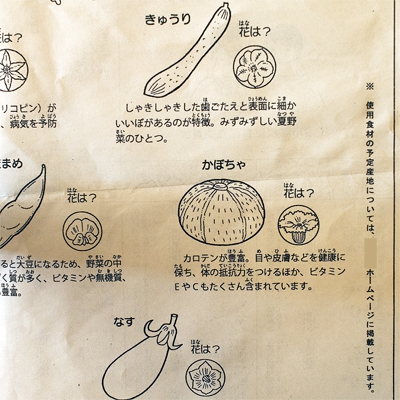 きゅうり
花は?
は?
しゃきしゃきした歯ごたえと表面に細か
いいぼがあるのが特徴。みずみずしい夏野
菜のひとつ。
リコピン)が
、病気を予防
まめ
花は?
ると大豆になるため、野菜の中
ぱく質が多く、ビタミンや無機質、
豊富。
かぼちゃ
花は?
カロテンが豊富。目や皮膚などを健康に
保ち、体の抵抗力をつけるほか、ビタミン
EやCもたくさん含まれています。
なす
花は?
※ 使用食材の予定産地については、 ホームページに掲載しています。